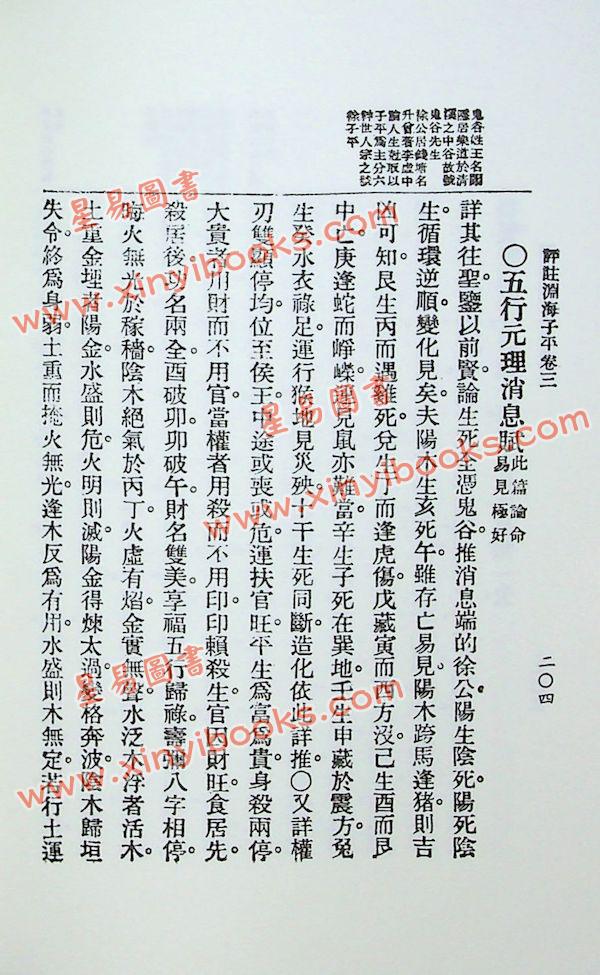 評註淵海子平卷三
二〇四
鬼谷姓王名
隱居樂道於清
溪之中谷故號
鬼谷先生
徐公居錢塘名
升曾著李虛中
論人生尅取以
子平為主分六
神世人宗之號
徐子平
〇五行元理消息賦 此篇論命易見極好
詳其往聖。鑒以前賢。論生死全憑鬼谷。推消息端的徐公。陽生陰死。陽死陰
生。循環逆順。變化見矣。夫陽木生亥死午。雖存亡易見。陽木跨馬逢猪。則吉
凶可知。艮生丙而遇雞死。兌生丁而逢虎傷。戊藏寅而西方沒。己生酉而艮
中亡。庚逢蛇而崢嶸。運見鼠亦難當。辛生子死在巽地。壬生申藏於震方。兔
生癸水衣祿足。運行猴地見災殃。十干生死同斷。造化依此詳推。〇又詳權
刃雙顯停均。位至侯王。中途或喪或危。運扶官旺。平生為富為貴。身殺兩停。
大貴者用財而不用官。當權者用殺而不用印。印賴殺生。官因財旺。食居先。
殺居後。功名兩全。酉破卯。卯破午。財名雙美。享福五行歸祿。壽彌八字相停。
晦火無光於稼穡。陰木絕氣於丙丁。火虛有焰。金實無聲。水泛木浮者活木。
土重金埋者陽金。水盛則危。火明則滅。陽金得煉太過。變格奔波。陰木歸垣
失令。終為身弱。土重而掩火無光。逢木反為有用。水盛則木無定。若行土運
星易圖書
www.xinyibooks.com
星易圖書
www.xinyibooks.com
星易圖書
www.xinyibooks.com
星易圖書
www.xinyibooks.com